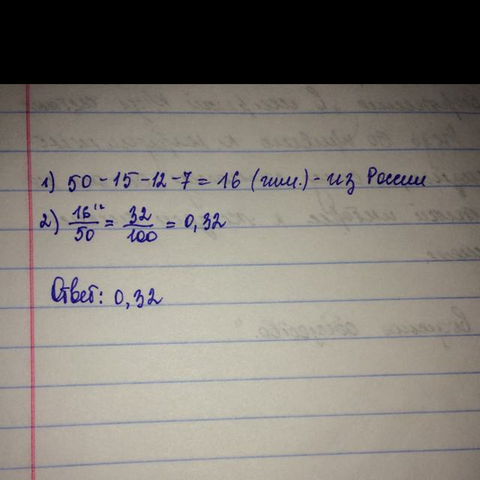 1) 50 - 15 - 12 - 7 = 16 (гим.) - из России
2) 16^{12}/50 = 32/100 = 0,32
Ответ: 0,32